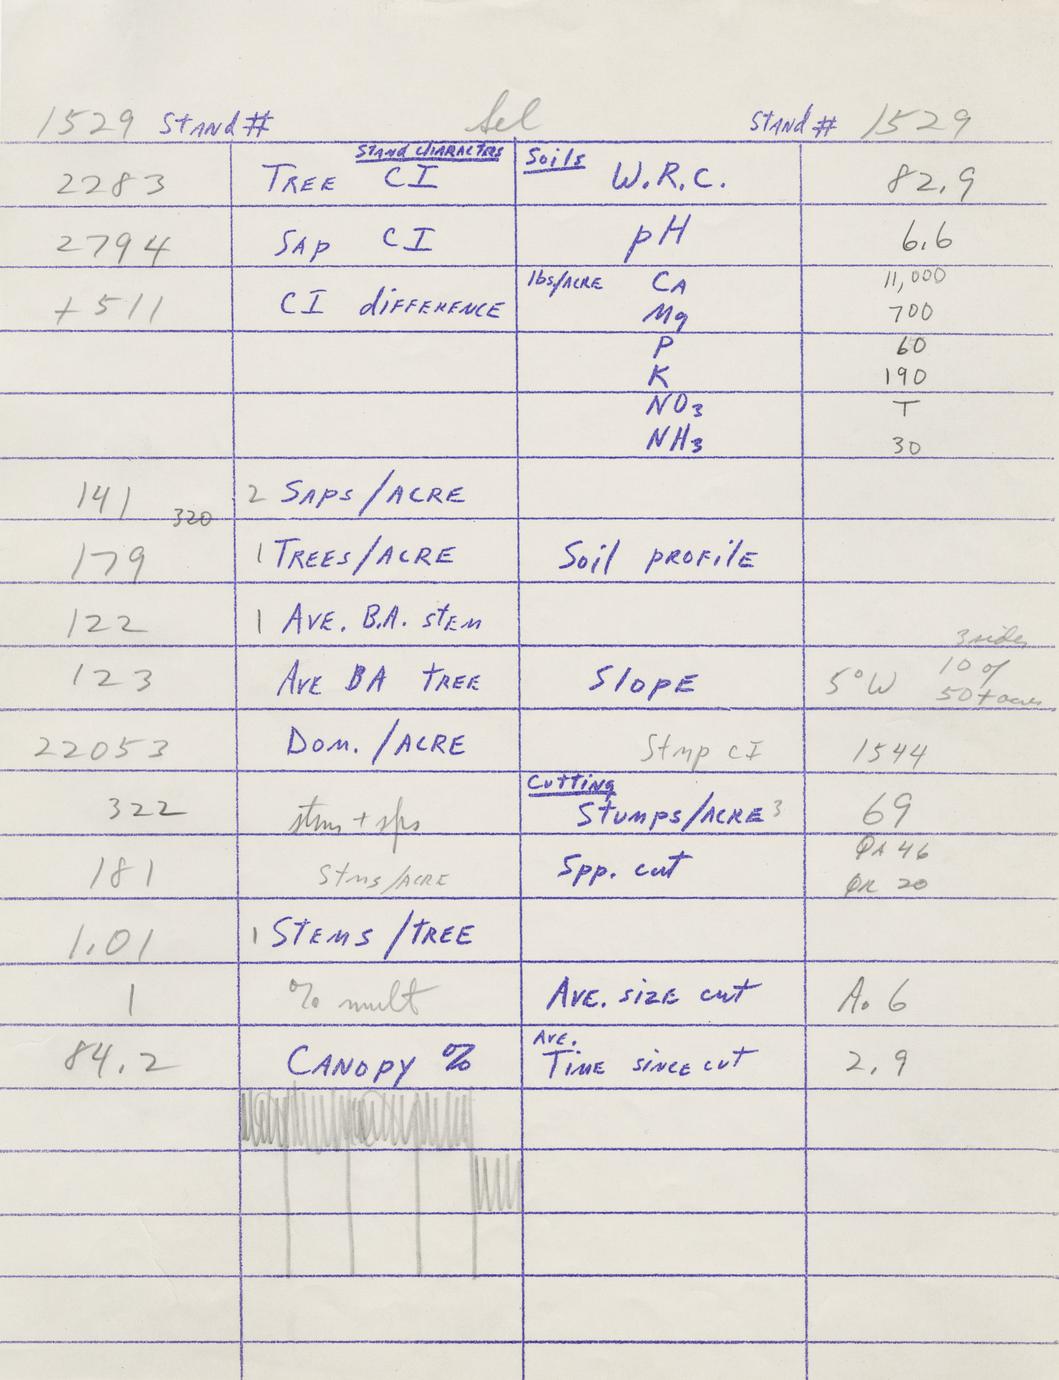 1529 Stand # Sel Stand # 1529
Stand Characters Soils
2283 Tree CI W.R.C. 82.9
2794 Sap CI pH 6.6
+511 CI difference lbs/Acre Ca 11,000
Mg 700
P 60
K 190
NO3 T
NH3 30
141 2 Saps/Acre
320
179 1 Trees/Acre Soil profile
122 1 Ave. B.A. stem
3 sides
123 Ave BA tree Slope 5°W 10 of
50+ acres
22053 Dom./Acre Stmp CI 1544
Cutting
322 stms + sps Stumps/Acre 3 69
181 Stms/Acre Spp. cut QA 46
QR 20
1.01 1 Stems/tree
1 % mult Ave. size cut A. 6
Ave.
84.2 Canopy % Time since cut 2.9